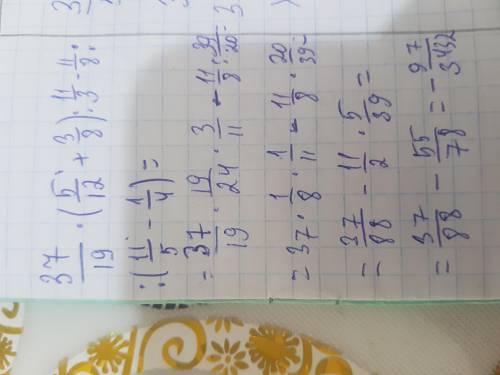 37/19 · (5/12 + 3/8) : 11/3 - 11/8 :
: (11/5 - 1/4) =
= 37/19 · 19/24 · 3/11 - 11/8 : 39/20 =
= 37 · 1/8 · 1/11 - 11/8 · 20/39 =
= 37/88 - 11/2 · 5/39 =
= 37/88 - 55/78 = - 97/3432